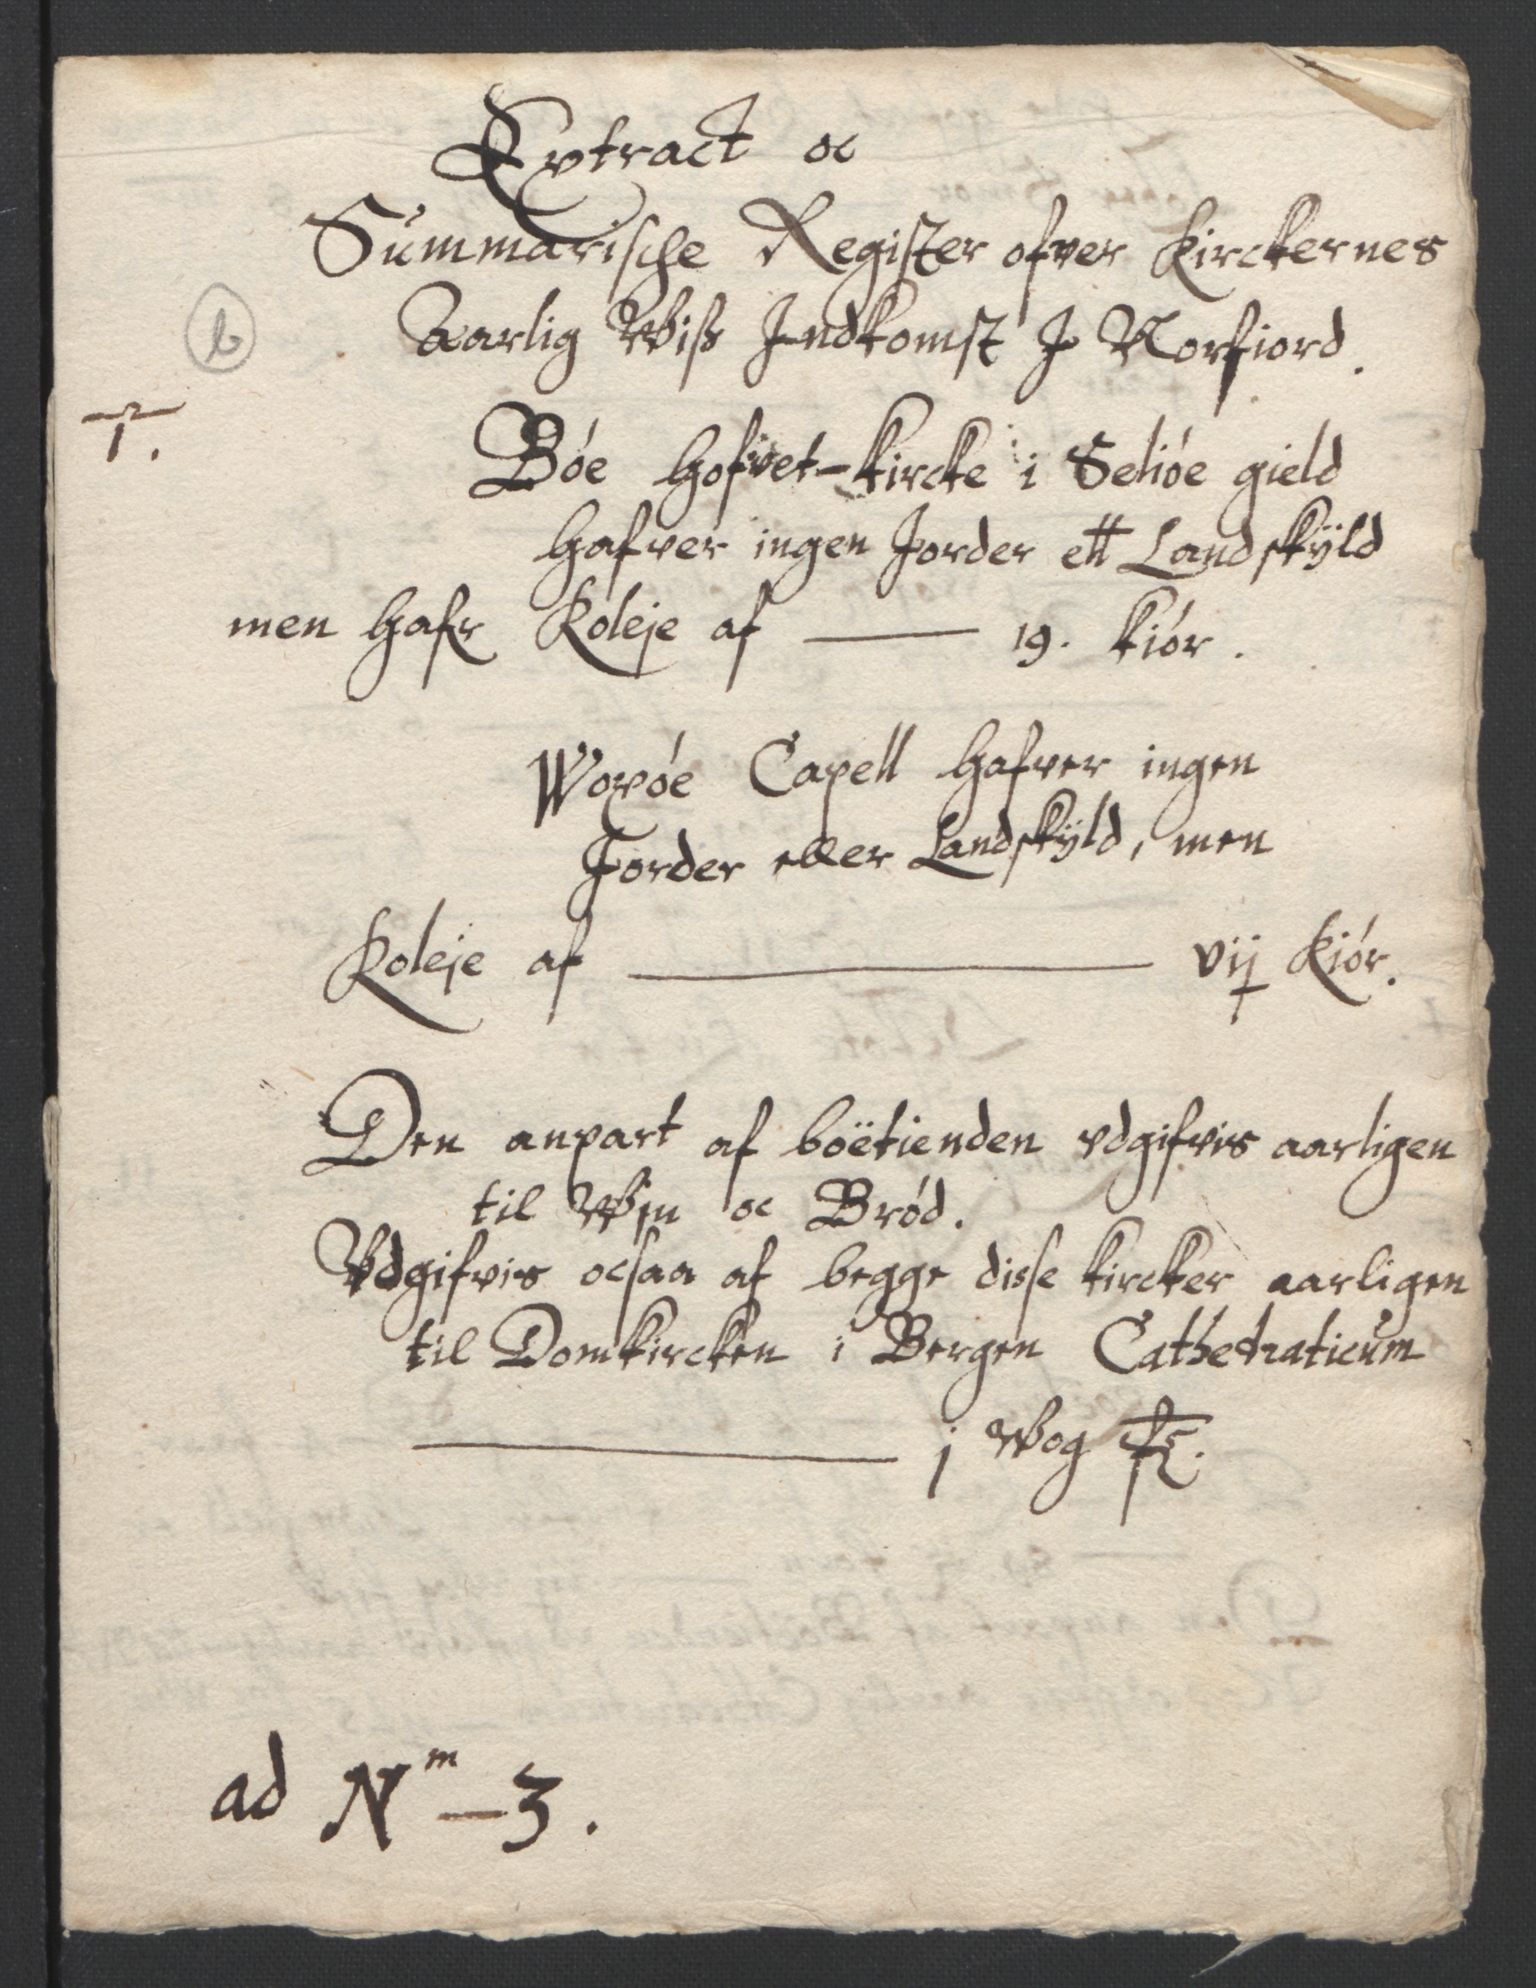 Extract oc
Summarische Register ofver Kirckernes
Aarlig Wiss Indkomst J Norfiord.
b
1.
Bóe Hofvet-kircke i Selióe gield
Hafver ingen Jorder ell Landskÿld
men Hafr Koleje af — 19. kiór.
Woxóe Capell Hafver ingen
Jorder eller Landskÿld, men
Koleje af — vij kiór.
Den anpart af boëtienden vdgifvis aarligen
til Wijn oc Bród.
Vdgifvis ocsaa af begge disse kircker aarligen
til Domkircken i Bergen Cathedraticum
— j Wog
ad Nm — 3.